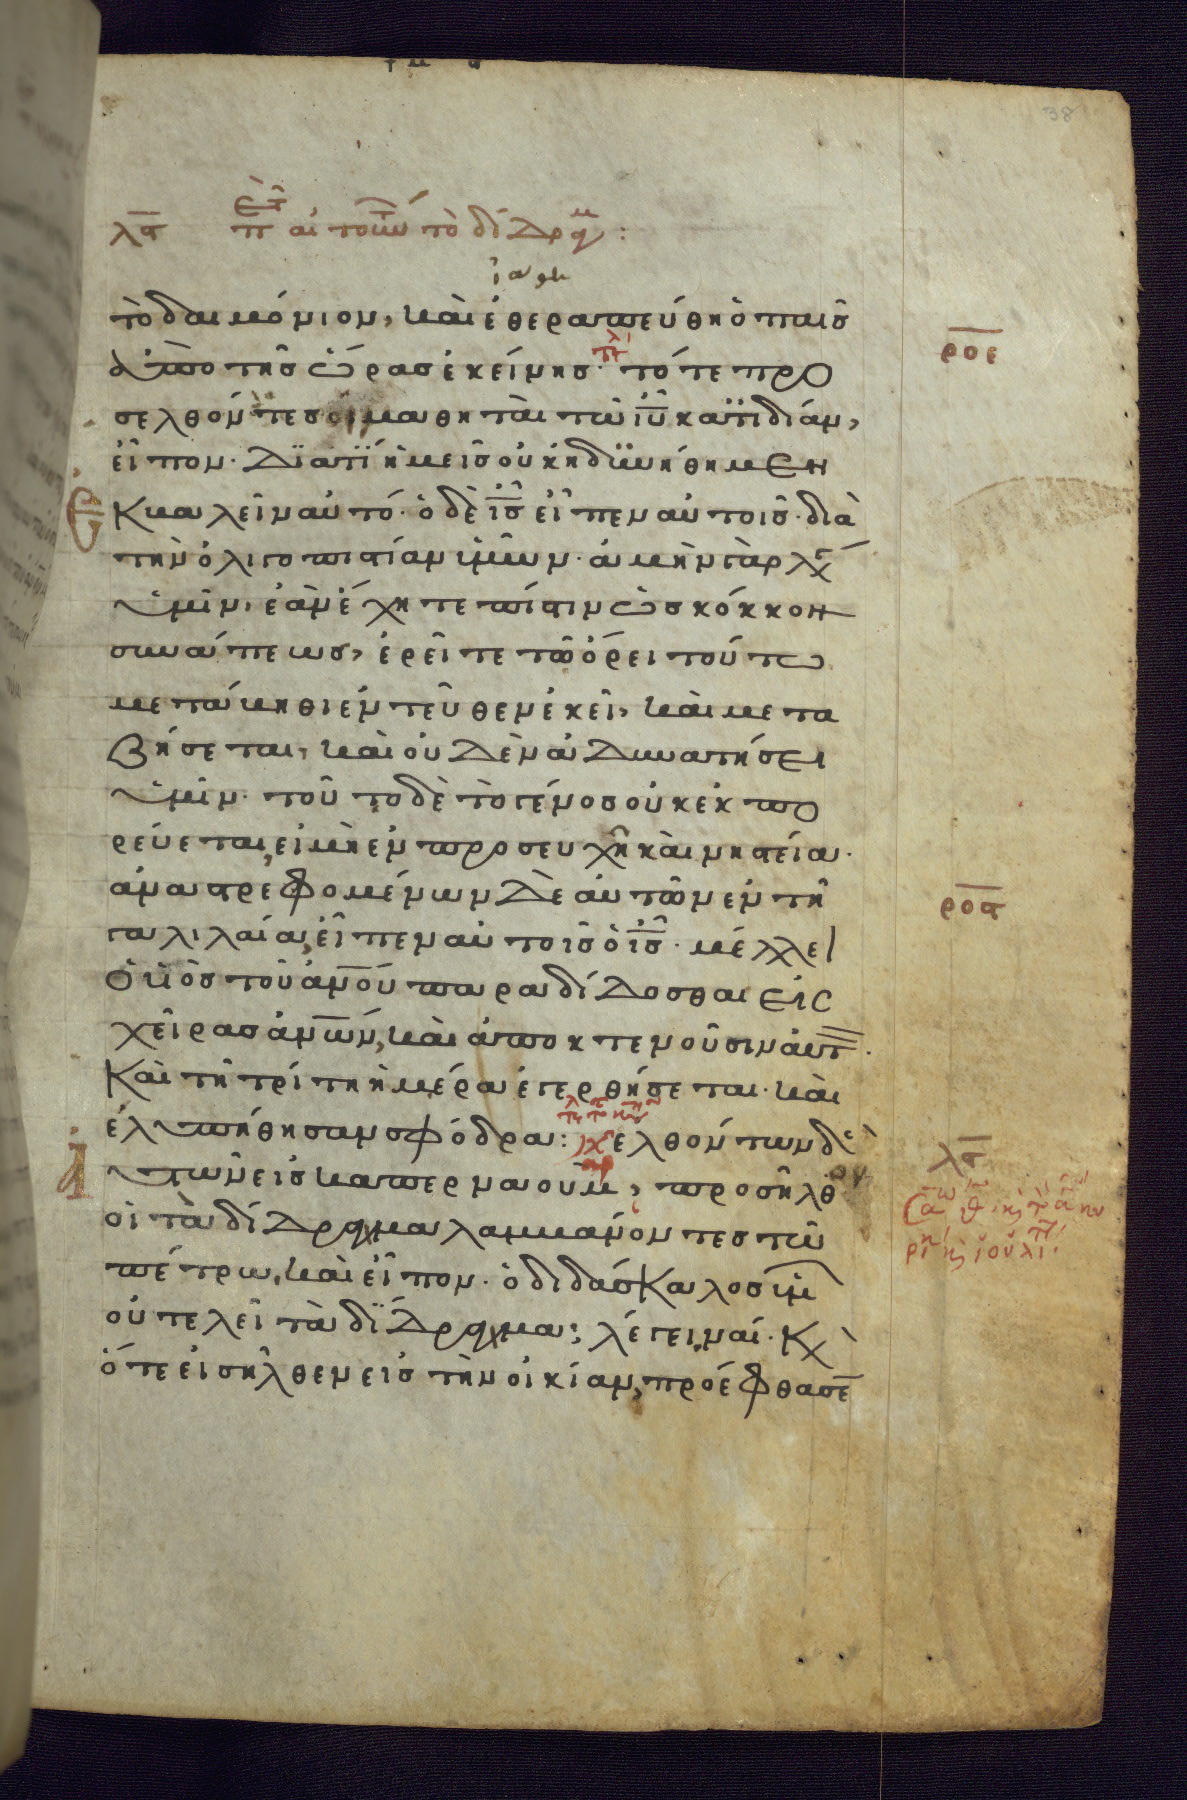 38
λϛ πε τ αιτουντων το διδραχμ :
τὸ δαιμόνιον, καὶ ἐθεραπεύθη ὁ παῖσ
ἀπὸ τῆσ ὥρασ ἐκείνησ· τότε προ
σελθόντεσ οἱ μαθηταὶ τῶ ἰῦ κατϊδίαν,
εἶπον· Διατί ἡμεῖσ οὐκ ἠδυνήθημεν
ἐκβαλεῖν αὐτό· ὁ δὲ ἰσ εἶπεν αὐτοῖσ· διὰ
τὴν ὀλιγοπιστίαν ὑμῶν· ἀμὴν γὰρ λέγ
ὑμῖν, ἐὰν ἔχητε πίστιν ὡσ κόκκον
σινάπεωσ, ἐρεῖτε τῶ ὄρει τούτω
μετάβηθι ἐντεῦθεν ἐκεῖ, καὶ μετα
βήσεται, καὶ οὐδὲν ἀδυνατήσει
ὑμῖν· τοῦτο δὲ τὸ γένοσ οὐκ ἐκπο
ρεύεται, εἰ μὴ ἐν προσευχῆ καὶ νηστεία·
ἀναστρεφομένων δὲ αὐτῶν ἐν τῆ
γαλιλαία, εἶπεν αὐτοῖσ ὁ ἰσ· μέλλει
ὁ υἱὸσ τοῦ ἀνου παραδίδοσθαι εἰσ
χεῖρασ ἀνων, καὶ ἀποκτενοῦσιν αὐτ·
Καὶ τῆ τρίτη ἡμέρα ἐγερθήσεται· καὶ
ἐλυπήθησαν σφόδρα: ελθόντων δὲ
ἀυτῶν εἰσ καπερναουμ, προσῆλθον
οἱ τὰ δίδραχμα λαμβάνοντεσ τῶ
πέτρω, καὶ εἶπον· ὁ διδάσκαλοσ ὑμ
οὐ τελεῖ τὰ δίδραχμα; λέγει, ναί· Κ
ὅτε εἰσῆλθεν εἰσ τὴν οἰκίαν, προέφθασε
ροε
ροϛ
λϛ